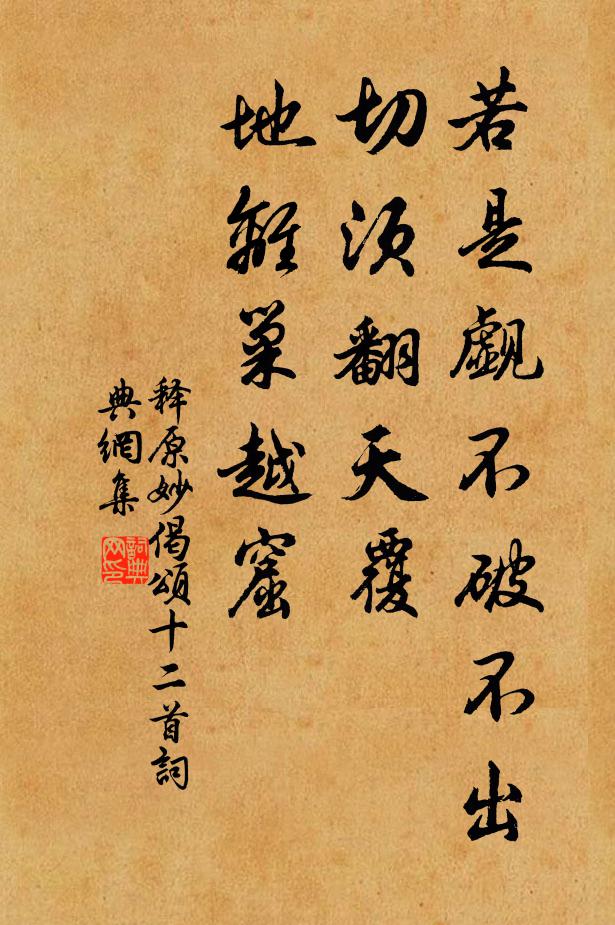 若是覷不破不出
切須翻天覆
地離巢越窟
釋原妙偈頌十二首詞
典網集
詞典網印